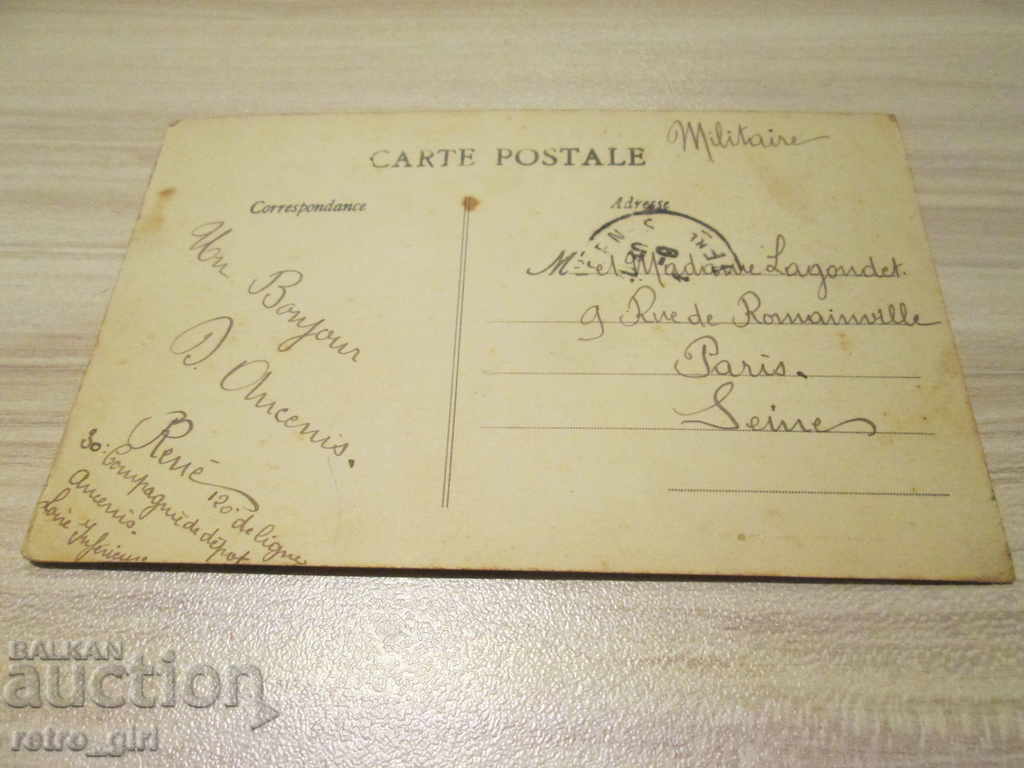 CARTE POSTALE
Militaire
Correspondance
Adresse
Un Bonjour
D. Ancenis.
René
120 de ligne
30. Compagnie de dépot
Ancenis.
Loire Inférieure
Mr et Madame Lagoudet.
9 Rue de Romainville
Paris.
Seine
BALKAN
auction
retro_girl